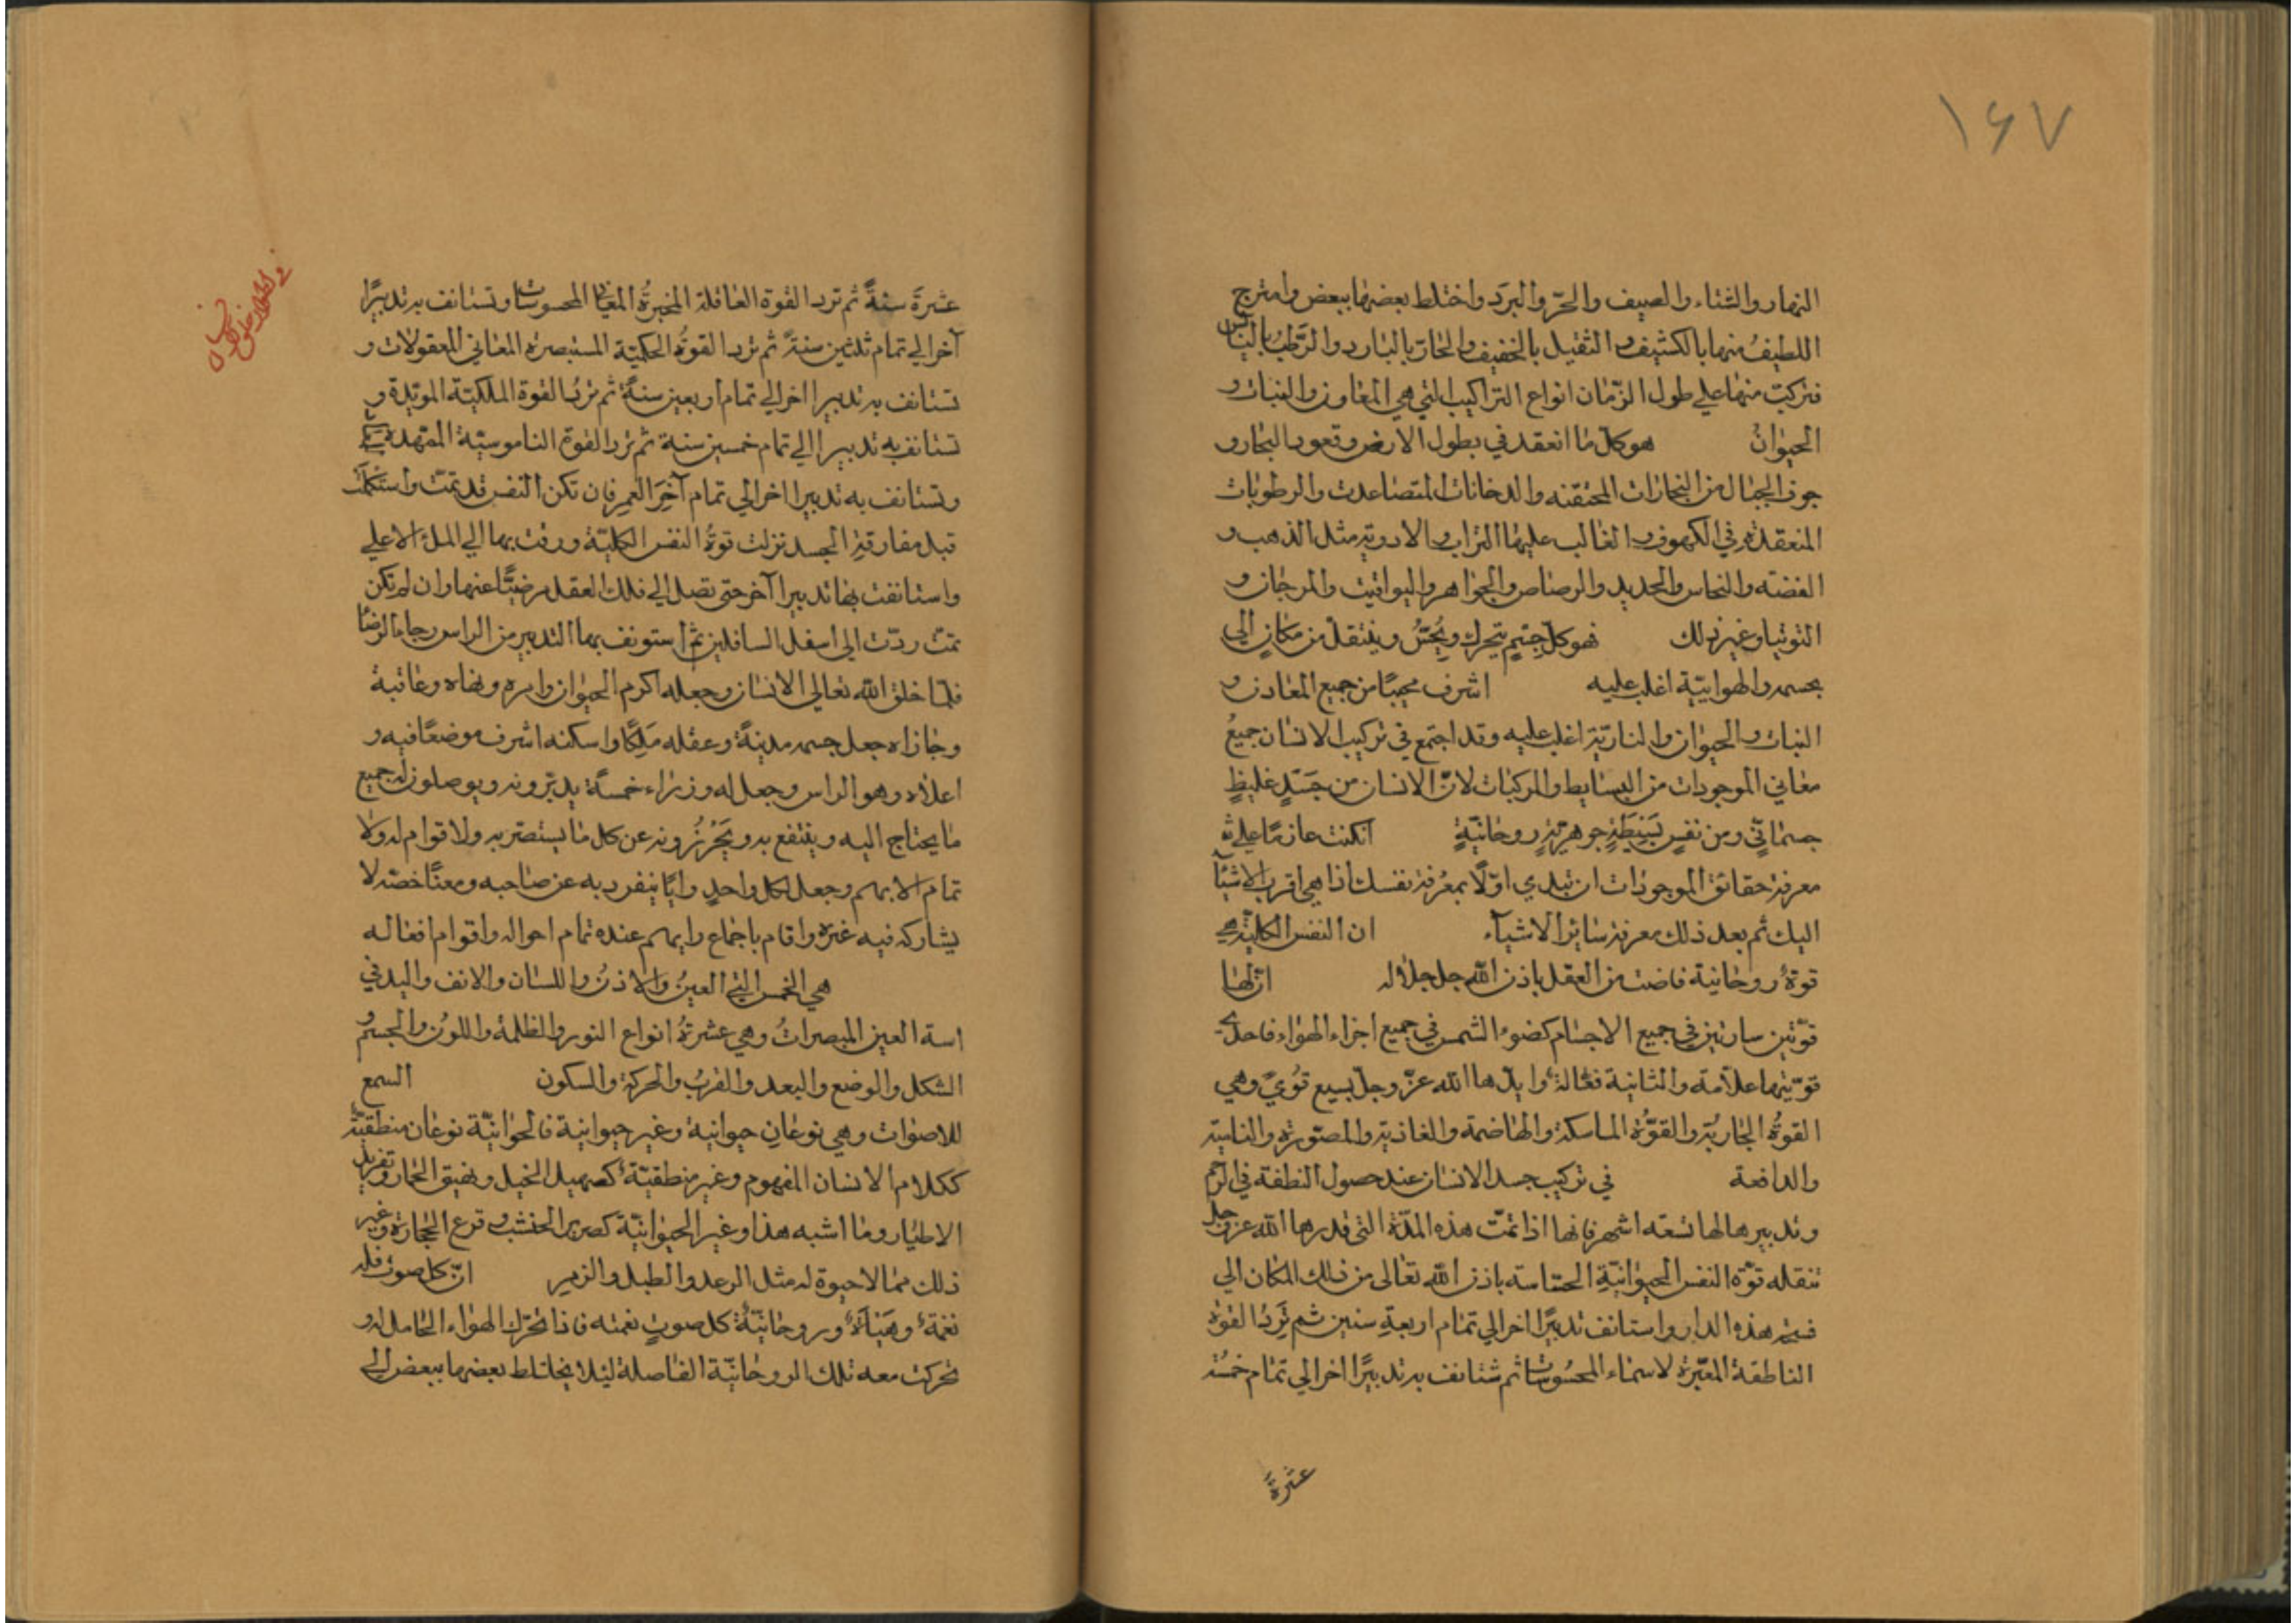 ١٤٧
النهار والشتاء والصيف والحرّ والبرَد واختلط بعضها ببعض وامتزج
اللطيفُ منها بالكثيف والثقيل بالخفيف والحارّ بالبارد والرَّطب باليابس
فتركبت منها على طول الزّمان انواع التراكيب التي هي المعاون والنبات و
الحيوانُ هو كلّ ما انعقد في بطول الارض وقعود البحار و
جوف الجبال من البخارات المحتقنه والدخانات المتصاعدت والرطوبات
المنعقدة في الكهوف والغالب عليها التراب والاروية مثل الذهب و
الفضته والنحاس والحديد والرصاص والجواهر واليواقيت والمرجان و
التوتيا وغير ذلك فهو كلّ جسمٍ يتحرك ويُحسّ وينتقل من مكانٍ الي
بجسمه والهوائيّة اغلب عليه اشرف من جميع المعادن و
النبات والحيوان والناريّة اغلب عليه وقد اجتمع في تركيب الانسان جميعُ
معاني الموجودات من البسايط والمركبات لانّ الانسان من جَسَدٍ غليظٍ
جسمانيّ ومن نفسٍ بَسيطَةٍ جوهريّةٍ روحانيّةٍ انكنت عازمًا علي
معرفة حقائق الموجودات ان تبدي اوّلًا بمعْرفة نفسك اذا هي اقرب الاشيآ
اليك ثم بعد ذلك معرفة سائر الاشيآء ان النفس الكلّيّة هي
قوة روحانية فاضت من العقل باذن الله جل جلاله ان لها
قوّتين ساريتين في جميع الاجسام كضوء الشمس في جميع اجزاء الهواء فاحدي
قوّتيها علّامة والثانية فعّالة وايدها الله عزّ وجلّ بسبع قوُي وهي
القوة الجاربة والقوّة الماسكة والهاضمة والغاذية والمصّورة والنامية
والدافعة في تركيب جسد الانسان عند حصول النطفة في الرحم
وتدبيرها لها تسعه اشهر فانها اذا تمّت هذه المدّة التي قدرها الله عزّ وجل
تنقله قوّة النفس الحيوانيّةِ الحسّاسة باذن الله تعالى من ذلك المكان الي
فسحة هذه الدار واستانف تدبيرًا اخر الي تمام اربعةِ سنين ثم تَرِدُ القوة
الناطقة المعبّرة لاسماء المحسُوسات ثم تستانف به تدبيرًا اخر الي تمام خمسة
عشرَة
في اطوار خلق الانسان
عشرَةَ سنةً ثم ترد القوة العاقلة المخبرةُ المعاني المحسوسات وتستانف به تدبيرًا
آخر الي تمام ثلثين سنةً ثم ترد القوةُ الحكميّة المستبصرة المعاني المعقولات و
تستانف به تدبيرا اخر الي تمام اربعين سنةً ثم تردُ القوة الملكيّة المويّدة و
تستانف به تدبيرا الي تمام خمسين سنة ثم ترد القوة الناموسيّة الممهدة
وتستانف به تدبيرا اخر الي تمام آخِرَ العمر فان تكن النفس قد تمّت واستكملت
قبل مفارقةِ الجسد نزلت قوةُ النفس الكليّة ورقت بها الي الملأ الاعلي
واستانفت بها تدبيرا آخر حتى تصل الي فلك العقل مرضيًّا عنها وان لم تكن
تمت ردّت الى اسفل السافلين ثم استونف بها التدبير من الراس رجاء الرضا
فلمّا خلق الله تعالي الانسان وجعله اكرم الحيوان وامره ونهاه وعاقبة
وجازاه جعل جسمه مدينةً وعقله مَلِكًا واسكنه اشرف موضعًا فيه و
اعلاه وهو الراس وجعل له وزراء خمسًة يدبّرونه ويوصلون له جميع
ما يحتاج اليه وينتفع به ويَحْرُزُونه عن كل ما يستضر به ولا قوام له ولا
تمام الا بهم وجعل لكل واحدٍ رايًا ينفرد به عن صاحبه ومعنًا خصّه لا
يشاركه فيه غيره واقام باجماع رايهم عنده تمام احواله واقوام افعاله
هي الخمس التي العينُ والاذنُ واللسان والانف واليد في
اسة العين المبصراتُ وهي عشرةُ انواع النور والظلمة واللون والجسم و
الشكل والوضع والبعد والقربُ والحركة والسكون السمع
للاصوات وهي نوعانِ حيوانية وغير حيوانية فالحوانيّة نوعان منطقيّةٌ
ككلام الانسان المفهوم وغير منطقيّة كصهيل الخيل ونهيق الحمار وتغريد
الاطيار وما اشبه هذا وغير الحيوانيّة كصرير الخشب وقرع الحجارة وغير
ذلك مما لا حيوة له مثل الرعد والطبل والزمر انّ كل صوت فله
نغمة وهَيْأة وروحانيّة كل صوتٍ نغمته فاذا تحرّك الهواء الحامل له و
تحركت معه تلك الروحانيّة الفاصلة ليلا يختلط بعضها ببعض الى